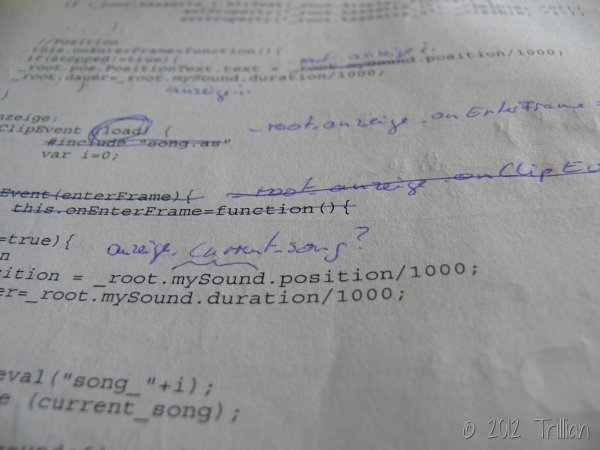 //Position
this.onEnterFrame=function(){
if(stopped!=true){ root.anzeige.i.
_root.pos.PositionText.text = _root.mySound.position/1000;
_root.dauer=_root.mySound.duration/1000;
} anzeige.i.
}
nzeige:
ClipEvent (load) { _root.anzeige.onEnterFrame =
#include "song.as"
var i=0;
Event(enterFrame){ root anzeige onClipEv
this.onEnterFrame=function(){
=true){ anzeige.current-song?
on
osition = _root.mySound.position/1000;
er=_root.mySound.duration/1000;
eval("song_"+i);
e (current_song);
© 2012 Trillian